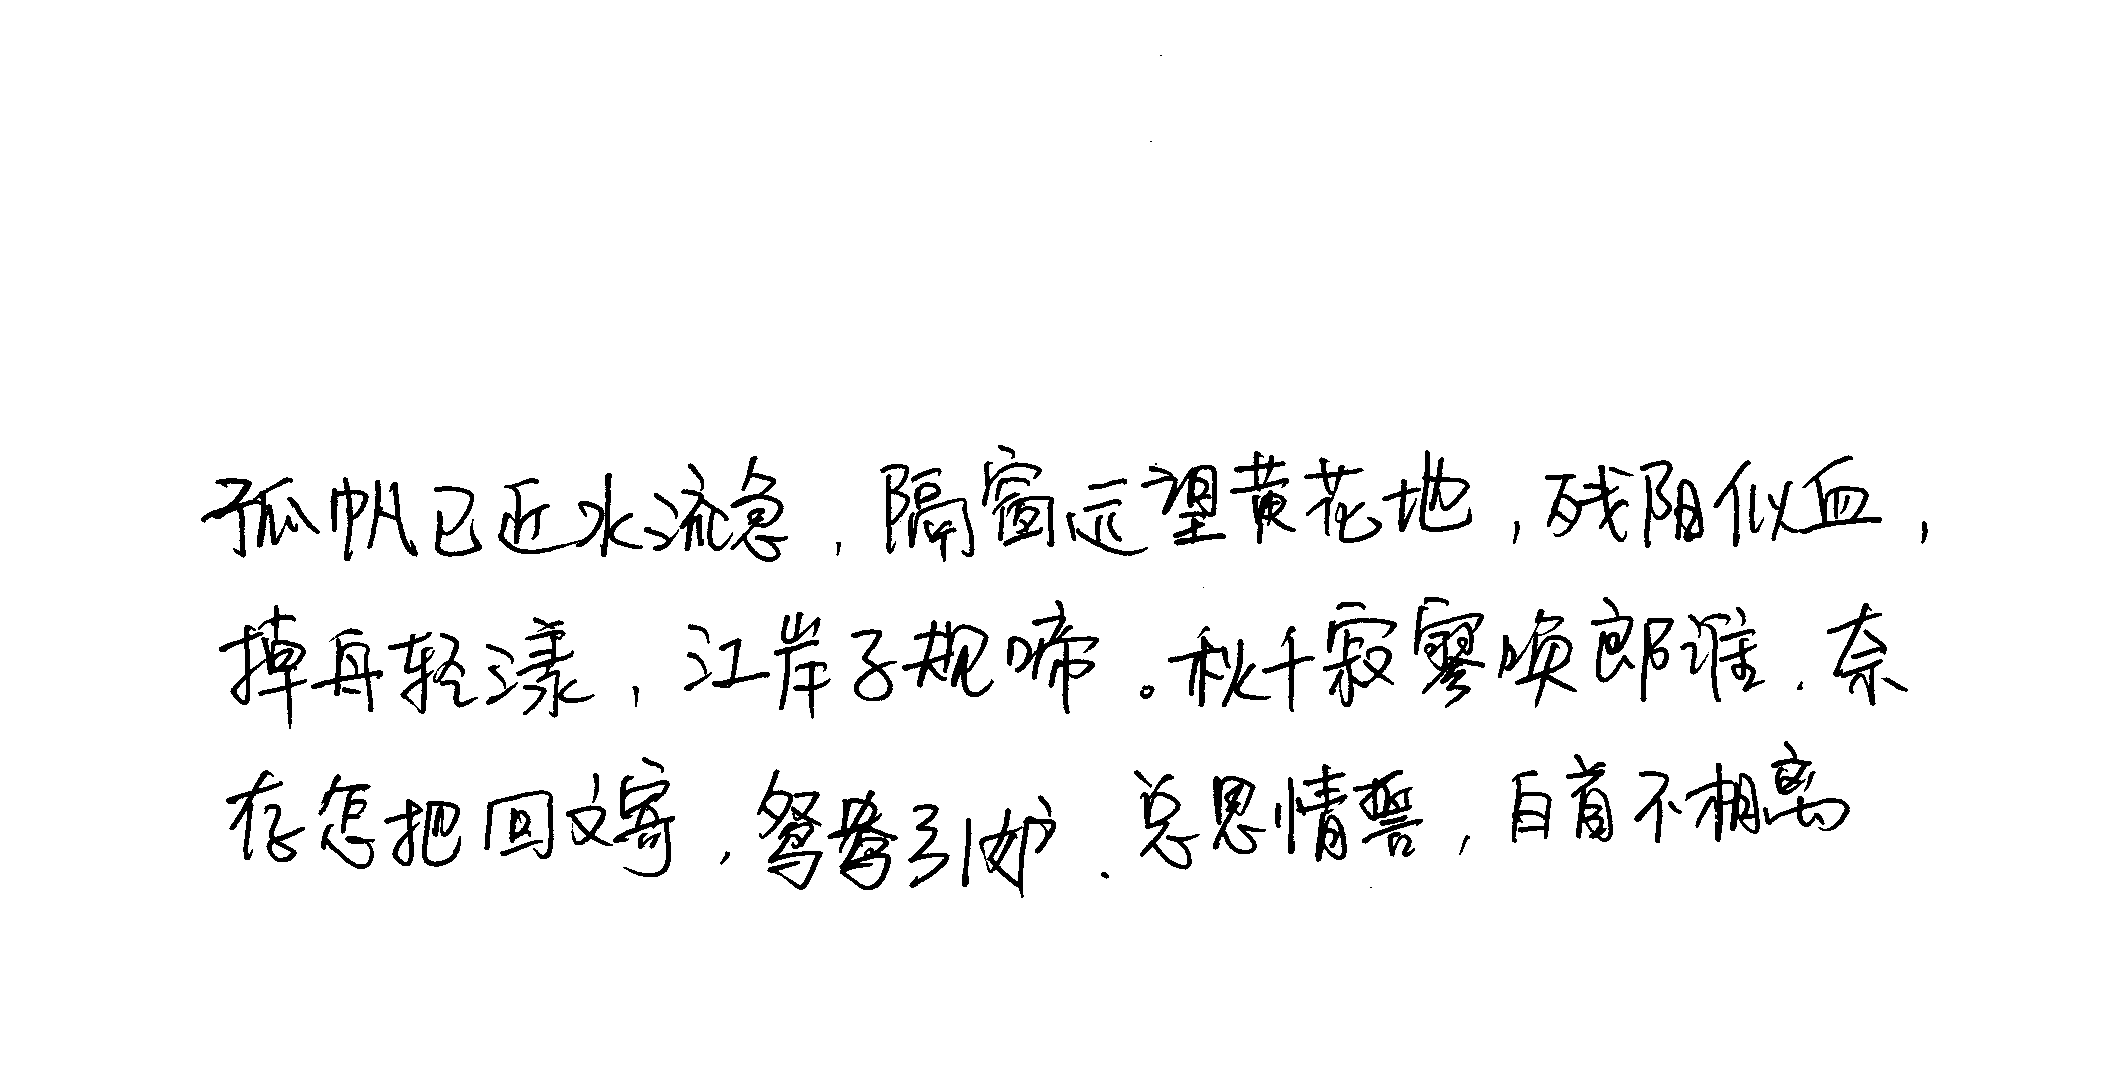 孤帆已近水流急,隔窗远望黄花地,残阳似血,
掉舟轻漾,江岸子规啼。秋千寂寥唤郎谁.奈
存怎把回文寄,鸳鸯引妒.总思情誓,白首不相离